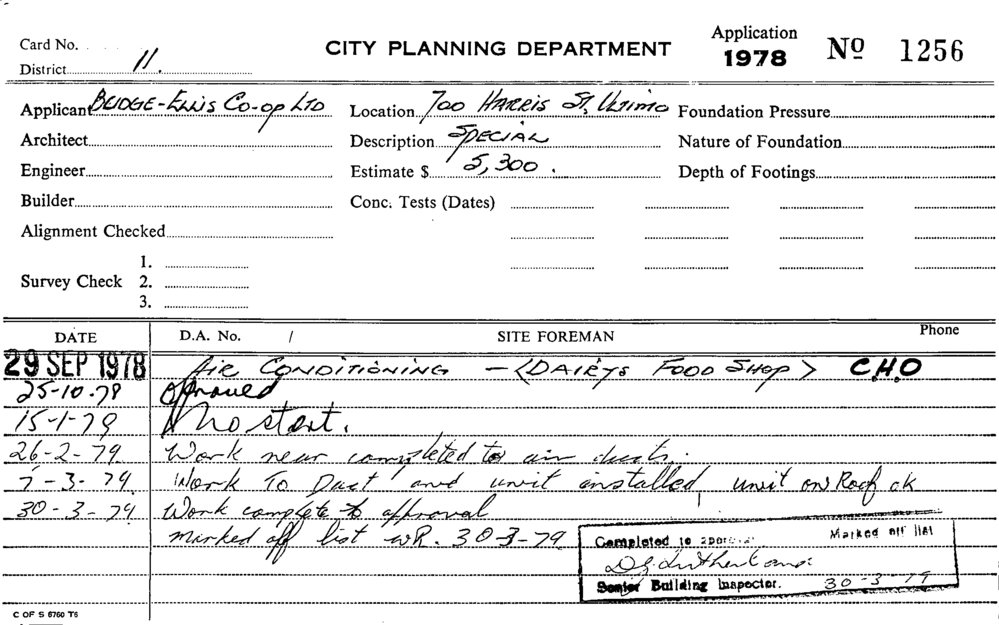 Card No.
District 11.
CITY PLANNING DEPARTMENT
Application
1978 No 1256
Applicant BUDGE-ELLIS CO-OP LTD
Location 700 HARRIS ST, ULTIMO
Foundation Pressure
Architect
Description SPECIAL
Nature of Foundation
Engineer
Estimate $ 5,300.
Depth of Footings
Builder
Conc. Tests (Dates)
Alignment Checked
Survey Check 1.
2.
3.
DATE D.A. No. / SITE FOREMAN Phone
29 SEP 1978 AIR CONDITIONING - <DAIRY & FOOD SHOP> C.H.O
25-10-78 Approved
15-1-79 No start.
26-2-79 Work near completed to air ducts.
7-3-79 Work To Duct and unit installed, unit on Roof ok
30-3-79 Work complete to approval
marked off list WR. 30-3-79
Completed to approval Marked off list
Senior Building Inspector. 30-3-79
C OF S 6760 T6